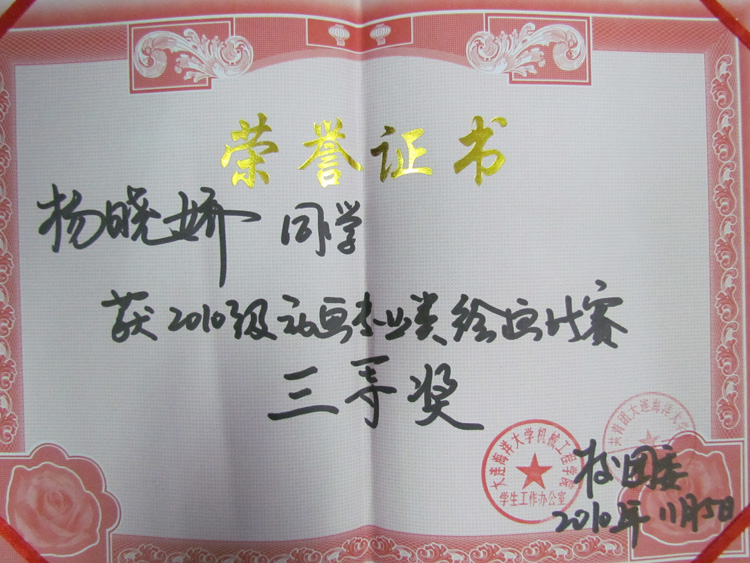 荣誉证书
杨晓娇 同学
获2010级动画专业类绘画比赛
三等奖
大连海洋大学机械工程学院
学生工作办公室
共青团大连海洋大学
校团委
2010年11月5日